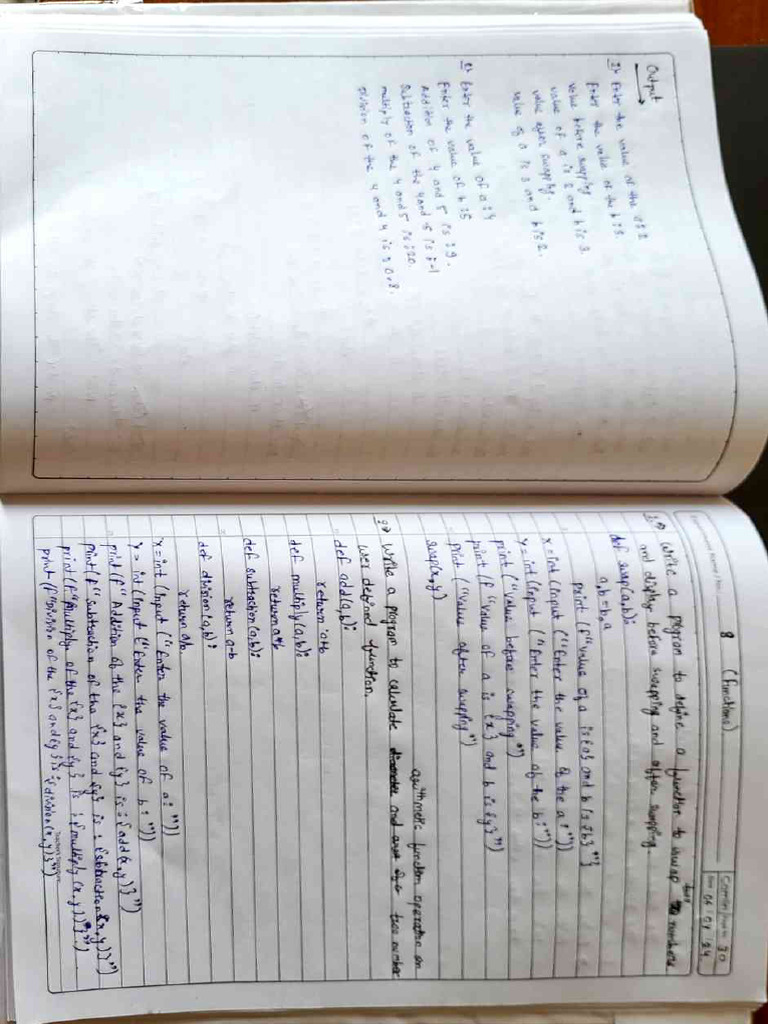 Output
1) Enter the value of the a: 2
Enter the value of the b: 3
Value before swapping
value of a is 2 and b is 3.
value after swapping.
value of a is 3 and b is 2.
2) Enter the value of a: 4
Enter the value of b: 5
Addition of 4 and 5 is: 9.
Subtraction of the 4 and 5 is: -1
multiply of the 4 and 5 is: 20.
Division of the 4 and 4 is: 0.8.
8 (Functions).
30
Date 06 / 07 / 24
1.) Write a program to define a function to swap two numbers
and display before swapping and after swapping.
def swap(a,b):
a,b = b,a
print (f"value of a is {a} and b is {b}")
x = int (input ("Enter the value of the a:"))
y = int (input ("Enter the value of the b:"))
print ("value before swapping")
print (f "value of a is {x} and b is {y}")
print ("value after swapping")
swap(x,y)
arithmetic function operation on
2) Write a program to calculate two number
user defined function.
def add(a,b):
return a+b
def multiply(a,b):
return a*b
def subtraction(a,b):
return a-b
def division(a,b):
return a/b
x = int (input ("Enter the value of a: "))
y = int (input ("Enter the value of b: "))
print (f" Addition of the {x} and {y} is : {add(x,y)}")
print (f" subtraction of the {x} and {y} is : {subtraction(x,y)}")
print (f"Multiply of the {x} and {y} is : {multiply (x,y)}")
print (f"Division of the {x} and {y} is : {division(x,y)}")
Teacher's Signature